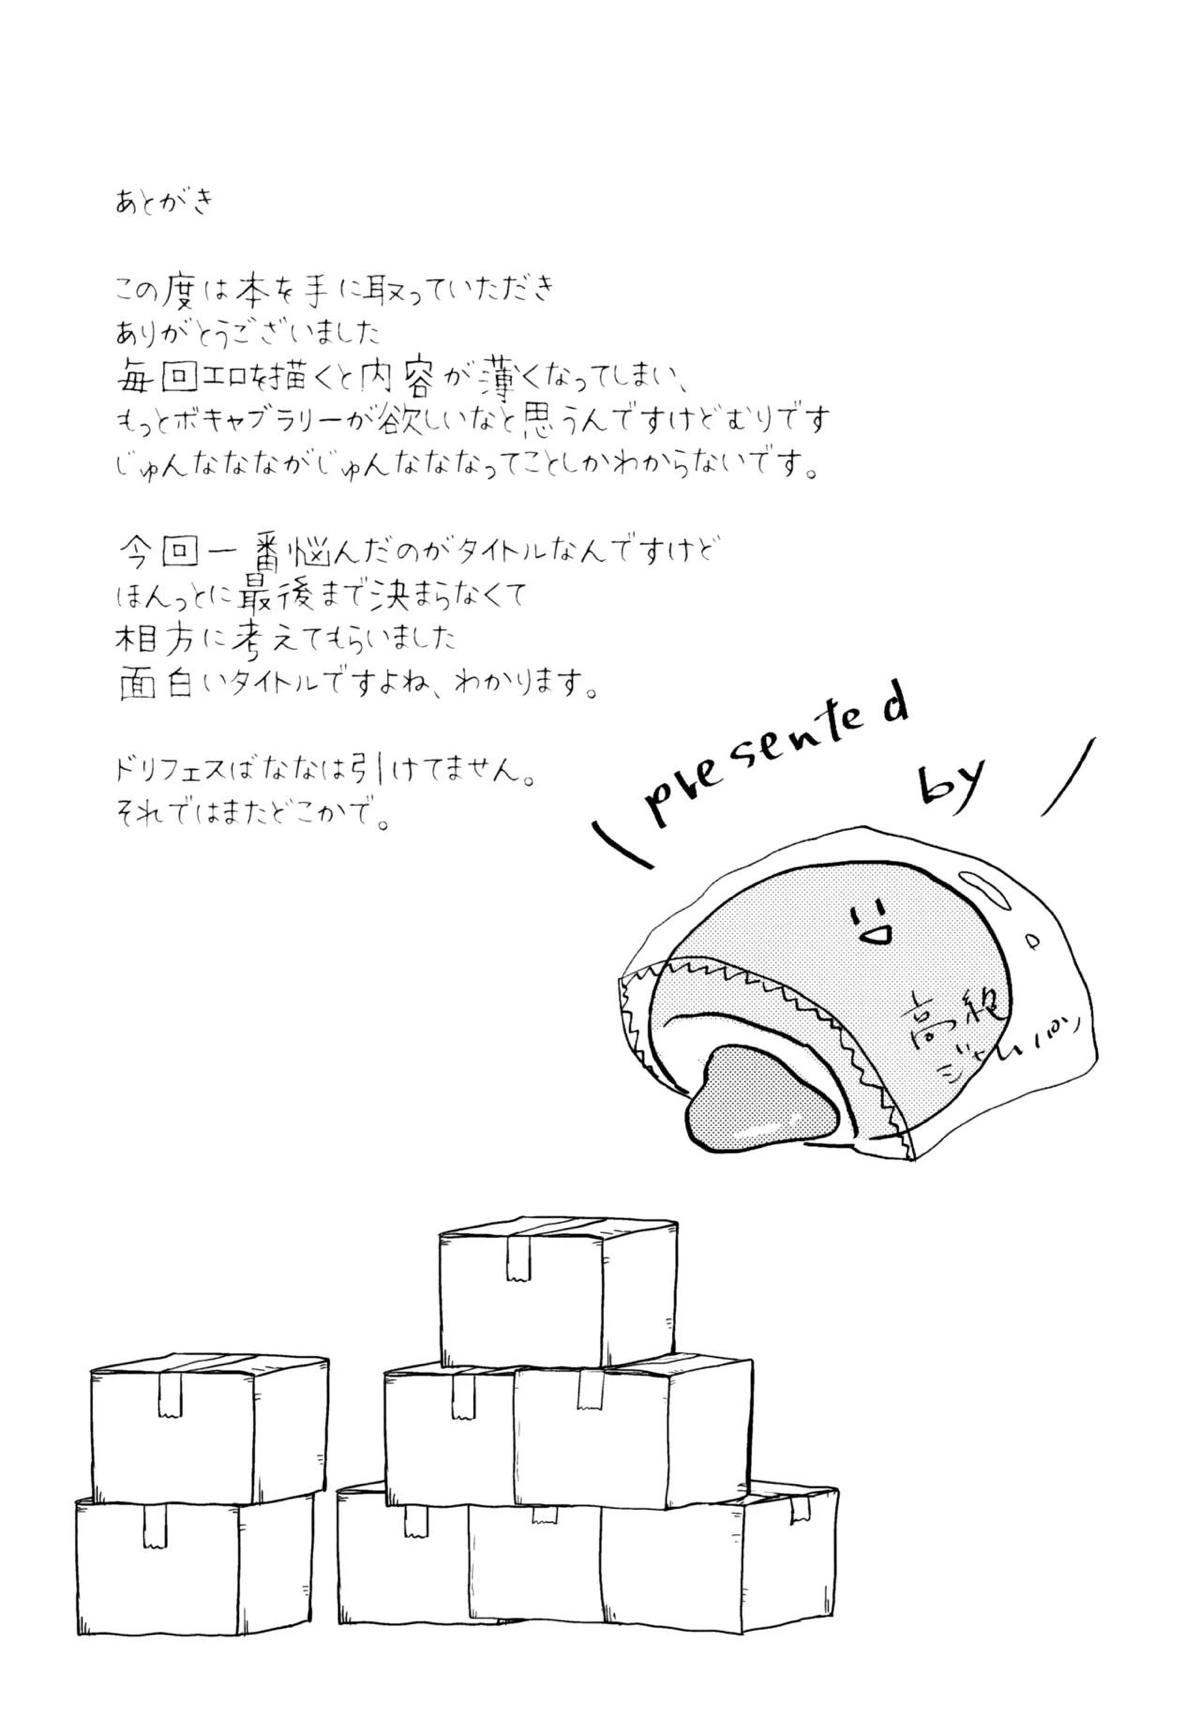 あとがき
この度は本を手に取っていただき
ありがとうございました
毎回エロを描くと内容が薄くなってしまい、
もっとボキャブラリーが欲しいなと思うんですけどむりです
じゅんななながじゅんなななってことしかわからないです。
今回一番悩んだのがタイトルなんですけど
ほんっとに最後まで決まらなくて
相方に考えてもらいました
面白いタイトルですよね、わかります。
ドリフェスばななは引けてません。
それではまたどこかで。
presented
by
高級
ジャムパン